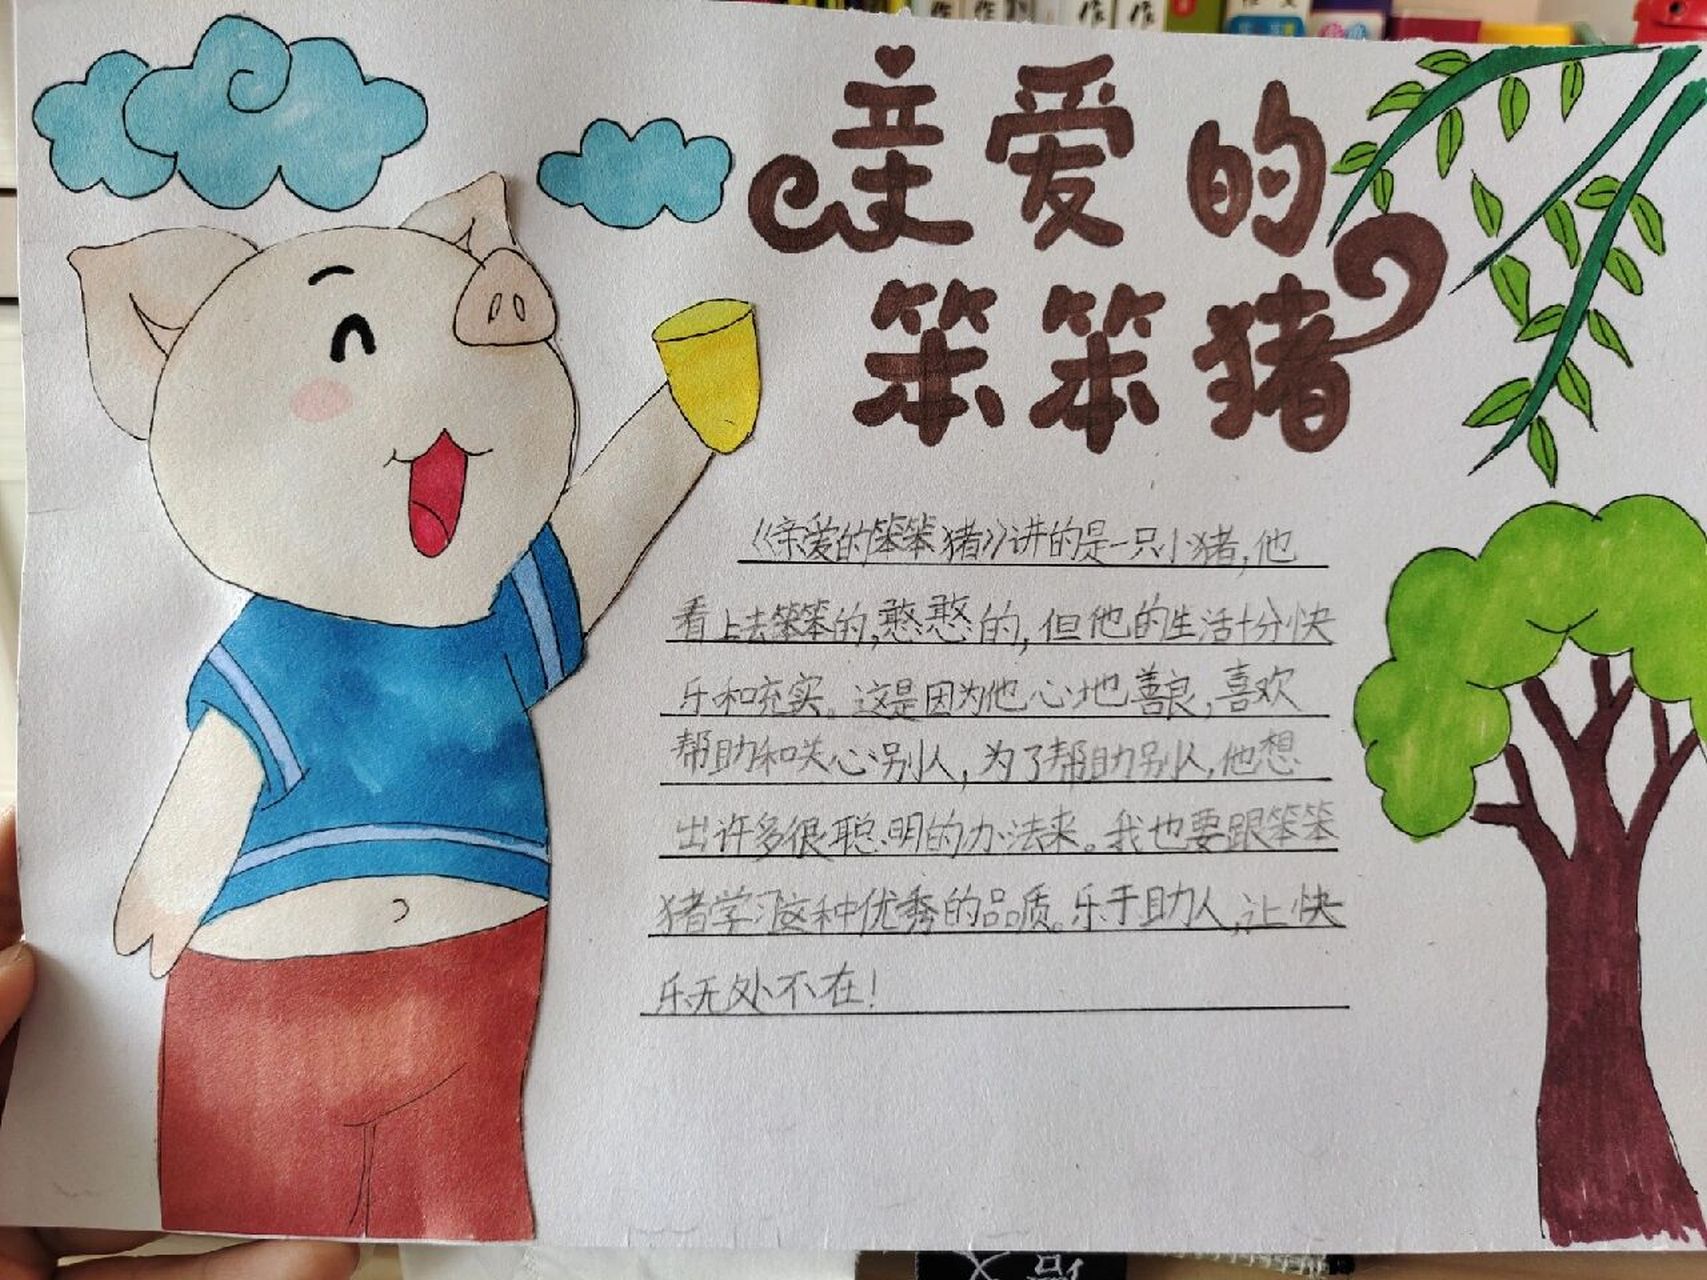 亲爱的
笨笨猪
《亲爱的笨笨猪》讲的是一只小猪,他
看上去笨笨的,憨憨的,但他的生活十分快
乐和充实。这是因为他心地善良,喜欢
帮助和关心别人,为了帮助别人,他想
出许多很聪明的办法来。我也要跟笨笨
猪学习这种优秀的品质。乐于助人,让快
乐无处不在!